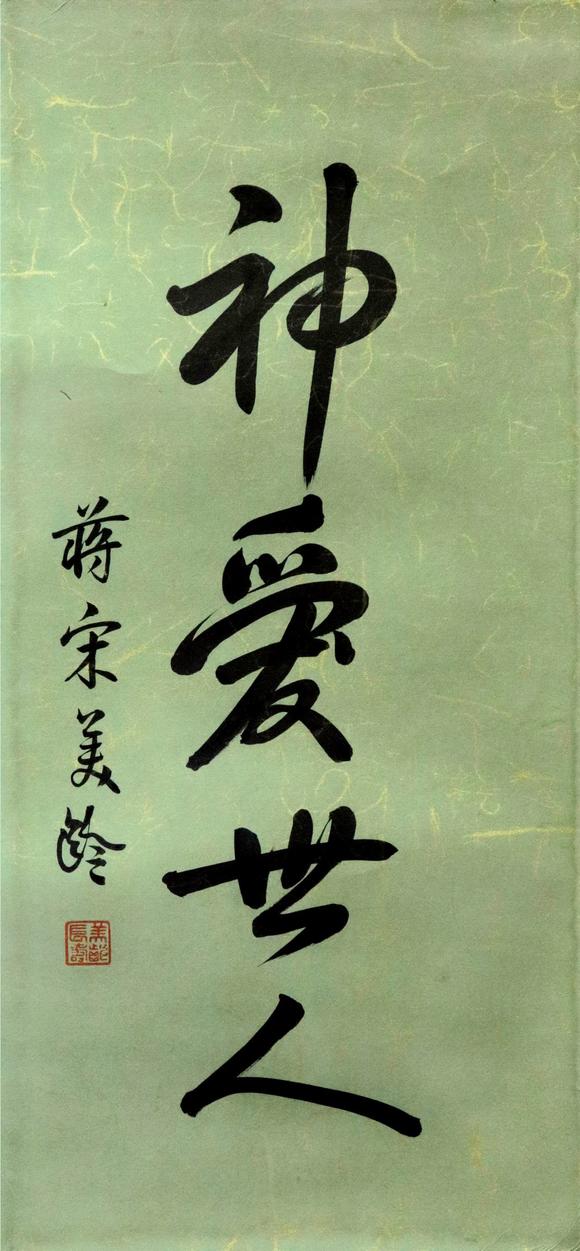 神愛世人
蔣宋美齡
美齡
長壽